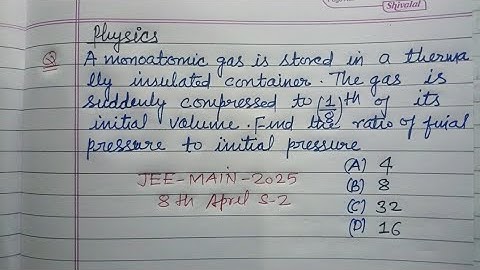 Shivalal
Physics
Q A monoatomic gas is stored in a therma
lly insulated container. The gas is
suddenly compressed to (1/8)th of its
initial volume. Find the ratio of final
pressure to initial pressure
(A) 4
(B) 8
(C) 32
(D) 16
JEE-MAIN-2025
8th April S-2